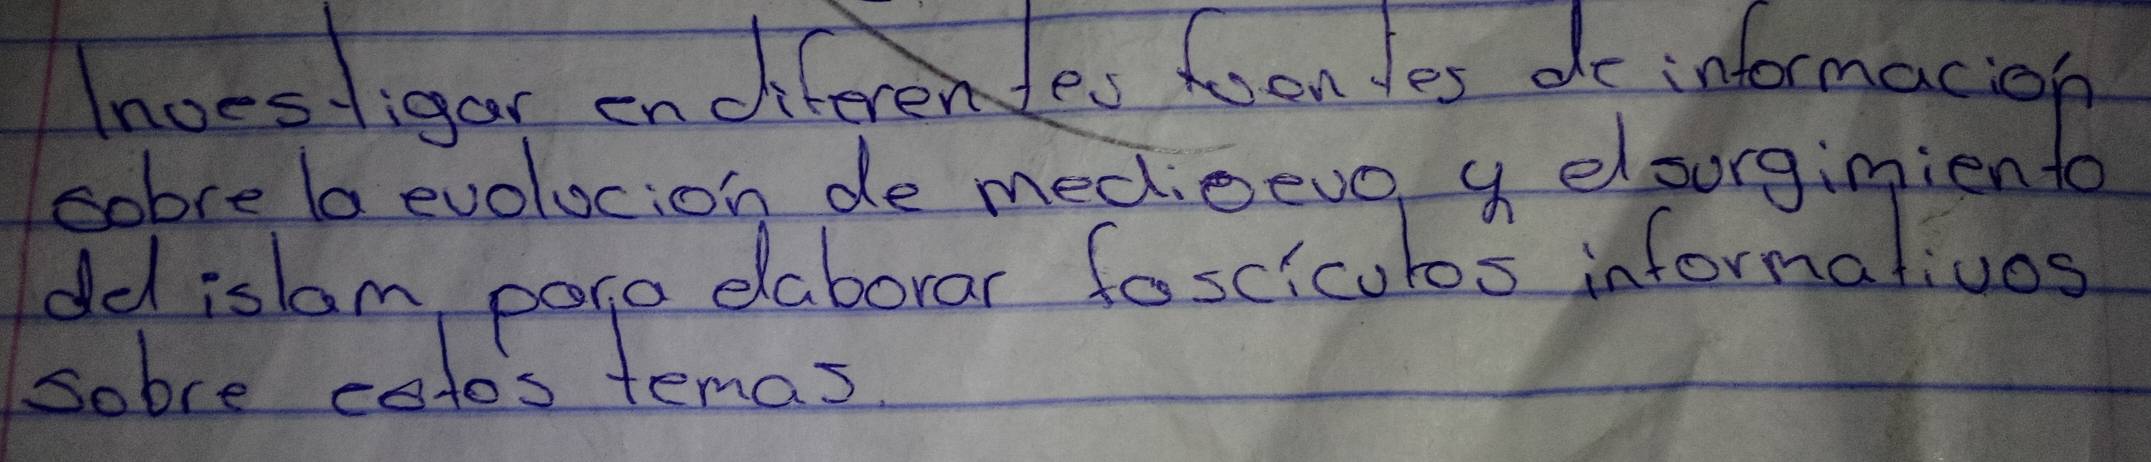 Investigar en diferentes fuentes de información
sobre la evolución de medioevo y el surgimiento
del islam, para elaborar fascículos informativos
sobre estos temas.